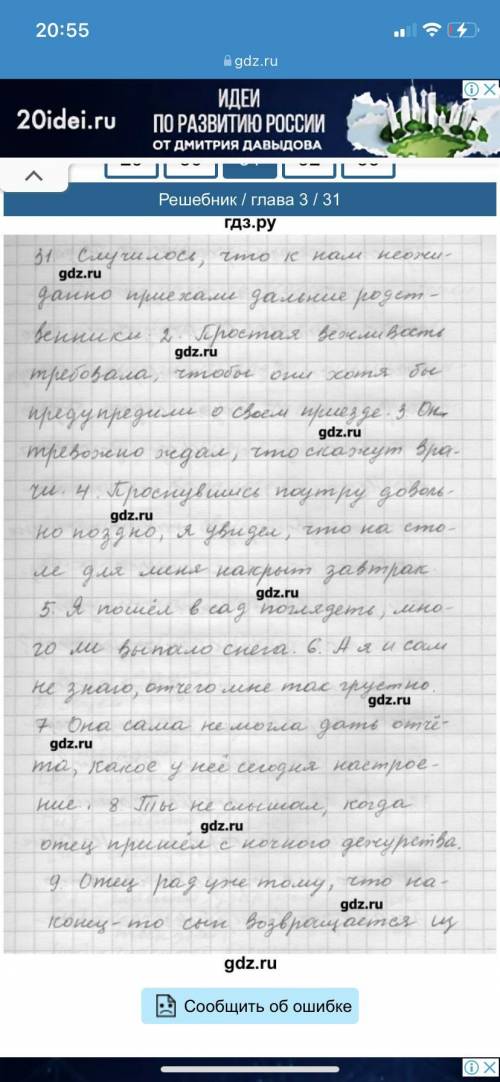 20:55
gdz.ru
20idei.ru
ИДЕИ
ПО РАЗВИТИЮ РОССИИ
ОТ ДМИТРИЯ ДАВЫДОВА
Решебник / глава 3 / 31
гдз.ру
31. Случилось, что к нам неожи-
gdz.ru
данно приехали дальние родст-
венники. 2. Простая вежливость
gdz.ru
требовала, чтобы они хотя бы
предупредили о своем приезде. 3. Он
gdz.ru
тревожно ждал, что скажут вра-
чи. 4. Проснувшись поутру доволь-
gdz.ru
но поздно, я увидел, что на сто-
ле для меня накрыт завтрак
gdz.ru
5. Я пошёл в сад поглядеть, мно-
го ли выпало снега. 6. А я и сам
не знаю, отчего мне так грустно.
gdz.ru
7. Она сама не могла дать отчё-
gdz.ru
та, какое у неё сегодня настрое-
ние. 8 Ты не слышал, когда
gdz.ru
отец пришёл с ночного дежурства.
9. Отец рад уже тому, что на-
gdz.ru
конец-то сын возвращается из
gdz.ru
Сообщить об ошибке